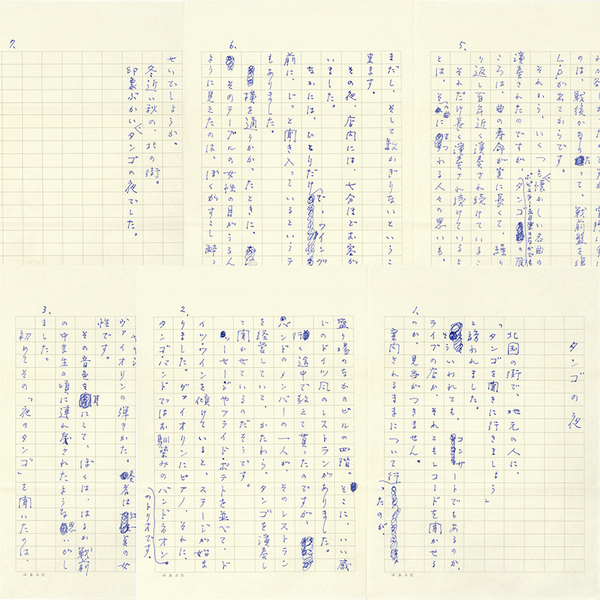 タンゴの夜
北国の街で、地元の人に、
「タンゴを聞きに行きましょう」
と誘われました。
といわれても、コンサートでもあるのか、
ライブの店か、それともレコードを聞かせる
のか、見当がつきません。
案内されるままについて行ったのが、
1.
盛り場のなかのビルの四階。そこに、いい感
じのドイツ風のレストランがありました。
行く途中で教えて貰ったのですが、
バンドのメンバーの一人が、そのレストラン
を経営していて、かたわら、タンゴを演奏し
て聞かせているのだそうです。
ソーセージやフライドポテトを並べて、ド
イツ・ワインを傾けていると、ステージが始ま
りました。ヴァイオリンにピアノ、それに、
タンゴ・バンドではお馴染みのバンドネオン
のトリオです。
2.
ヴァイオリンの弾きかた。奏者は女
性です。
その音色を耳にして、ぼくは、はるか戦前
の中学生の頃に連れ戻されたような思いがし
ました。
初めてその「夜のタンゴ」を聞いたのは、
3.
のは、戦後かなりたって、戦前盤を
LPが出てからです。
それから、いくつも懐かしい名曲の
演奏されたのですが、タンゴの
ころは、曲の寿命が実に長くて、繰
り返し百年近く演奏され続けているこ
それだけ長く演奏され続けていると
とは、それにつれる人々の思いも、
5.
まだし、そして数かぎりないというこ
来ます。
その夜、店内には、七分ほどお客が
いました。
なかには、ひとりだけで、ワイング
前に、じっと聞き入っているというテ
もありました。
横を通りかかったときに、
そのテーブルの女性の目がうるん
ように見えたのは、ぼくがすこし酔っ
6.
せいでしょうか。
冬近い秋の、北の街。
印象ぶかいタンゴの夜でした。
7.